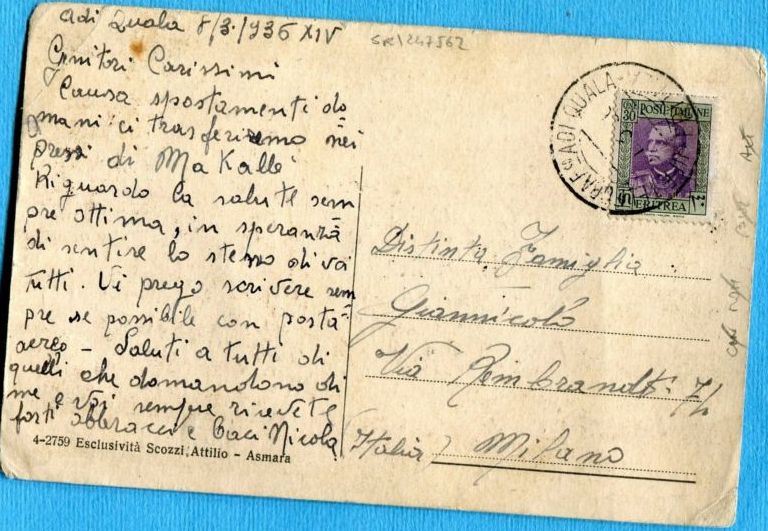 Adi Quala 8/3/1936 XIV
Genitori Carissimi
Causa spostamenti do
mani ci trasferiremo nei
pressi di Makallé
Riguardo la salute sem
pre ottima, in speranza
di sentire lo stesso di voi
tutti. Vi prego scrivere sem
pre se possibile con posta
aerea - Saluti a tutti di
quelli che domandono di
me e voi sempre ricevete
forti abbracci e baci Nicola
4-2759 Esclusività Scozzi Attilio - Asmara
ADI QUALA
POSTE ITALIANE
CENT. 30
ERITREA
Distinta Famiglia
Giannicolò
Via Rembrandt
(Italia) Milano